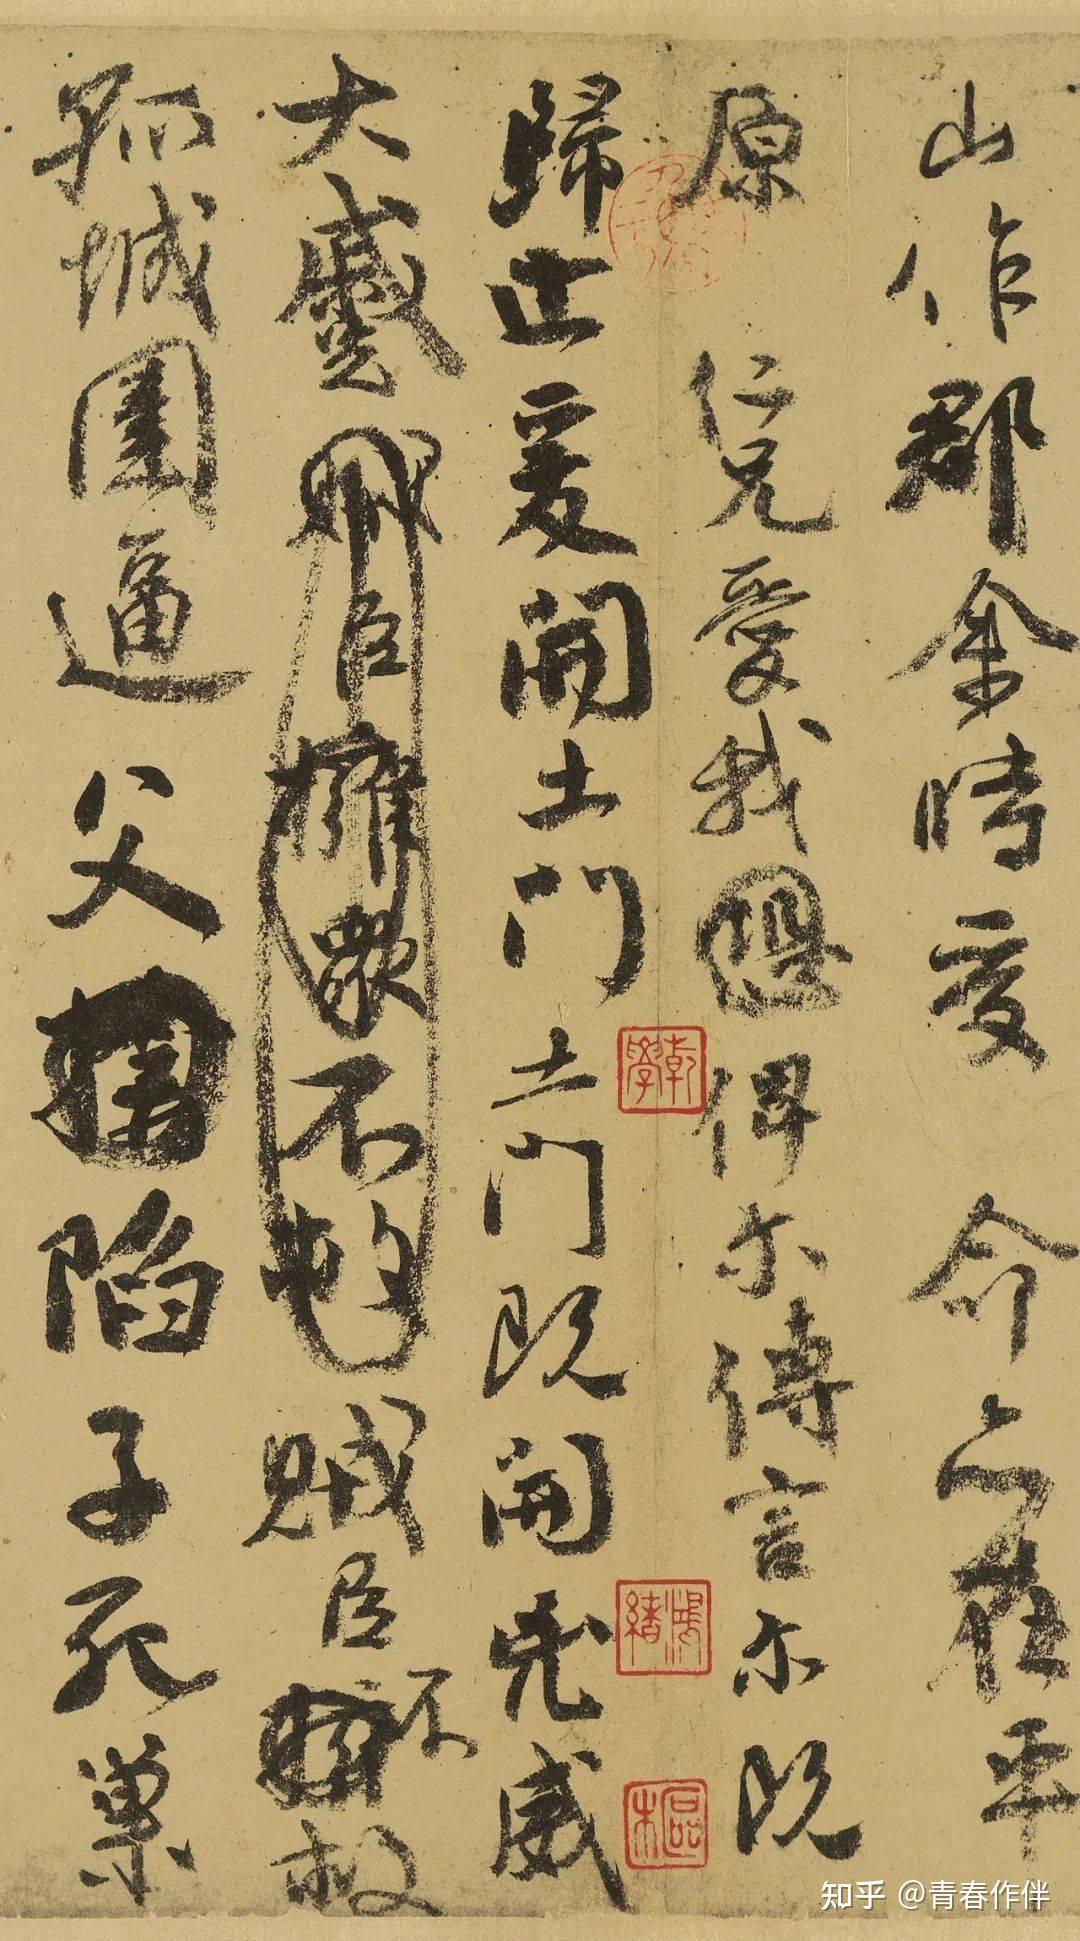 山作郡余時受 命亦在平
原 仁兄愛我俾尔傳言尔既
歸止爰開土門土門既開凶威
大蹙賊臣擁衆不救賊臣不救
孤城圍逼父陷子死巢
乾學
鴻緒
知乎 @青春作伴